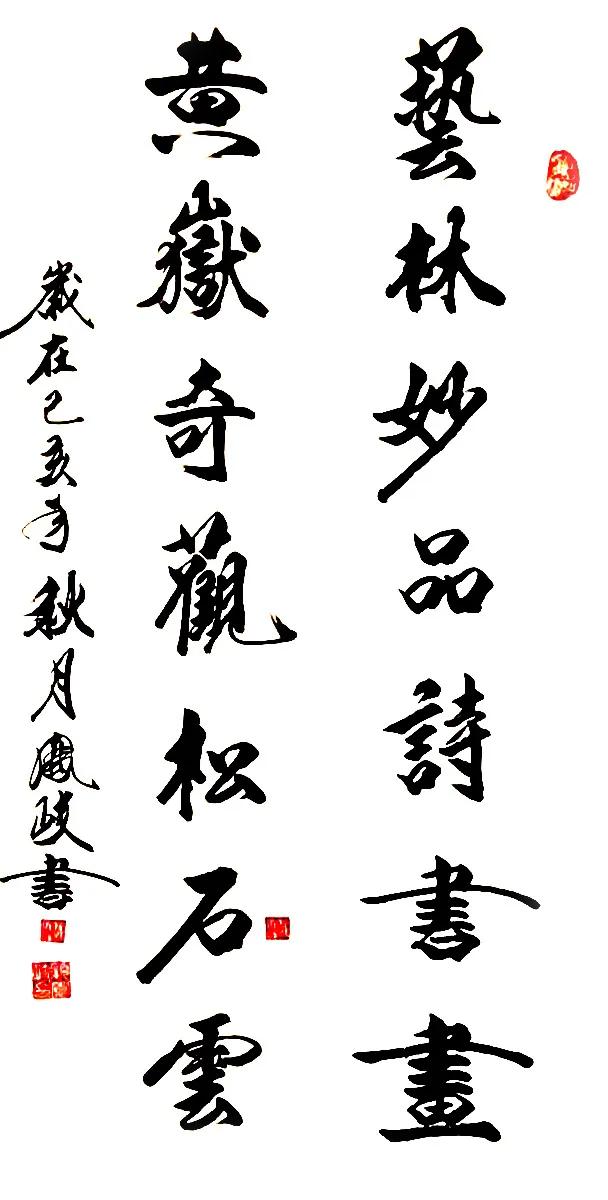 藝林妙品詩書畫
黃嶽奇觀松石雲
歲在己亥年秋月鳳政書